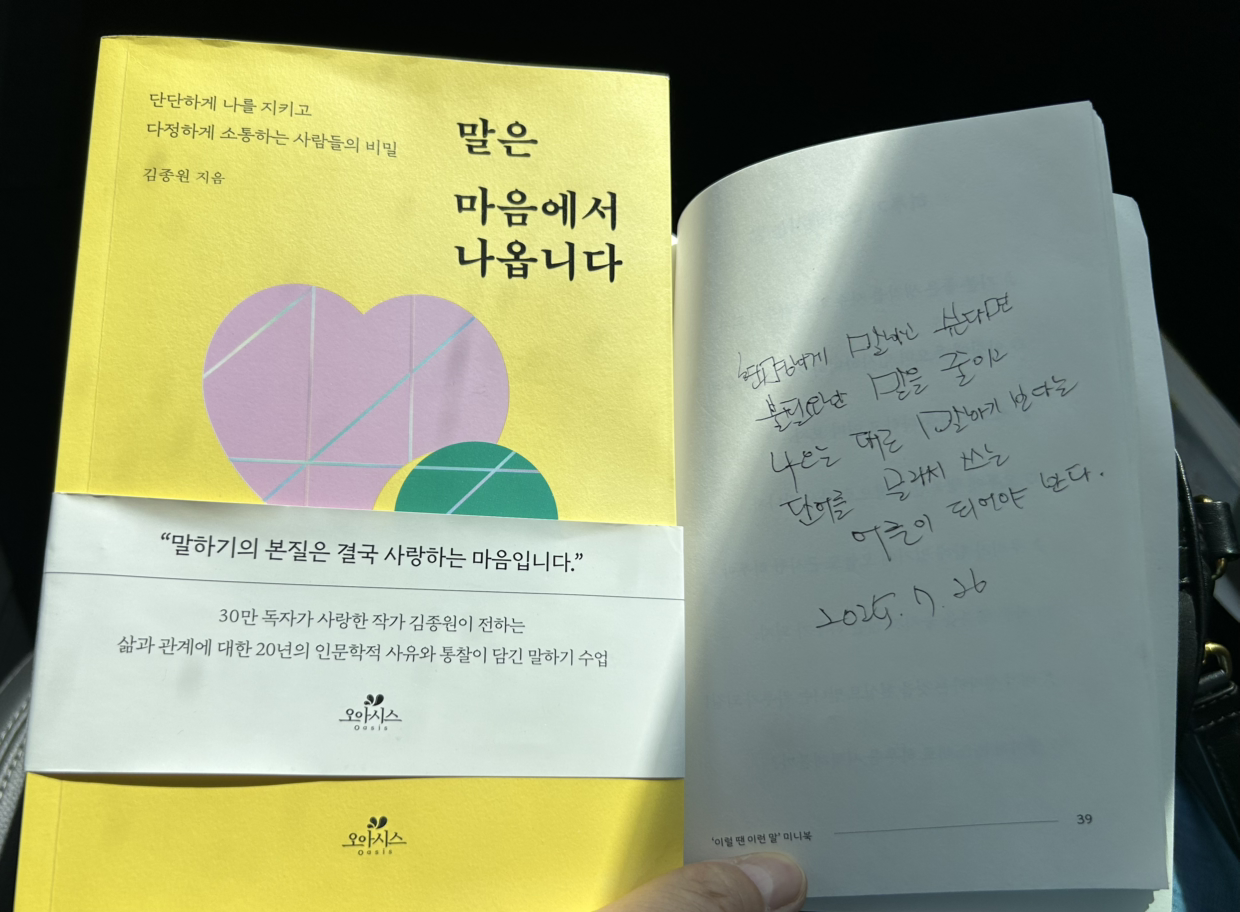 단단하게 나를 지키고
다정하게 소통하는 사람들의 비밀
김종원 지음
말은
마음에서
나옵니다
“말하기의 본질은 결국 사랑하는 마음입니다.”
30만 독자가 사랑한 작가 김종원이 전하는
삶과 관계에 대한 20년의 인문학적 사유와 통찰이 담긴 말하기 수업
오아시스
oasis
오아시스
oasis
현명하게 말하고 싶다면
불필요한 말을 줄이고
나오는 대로 말하기 보다는
단어를 골라서 쓰는
어른이 되어야 한다.
2025. 7. 26
‘이럴 땐 이런 말’ 미니북
39